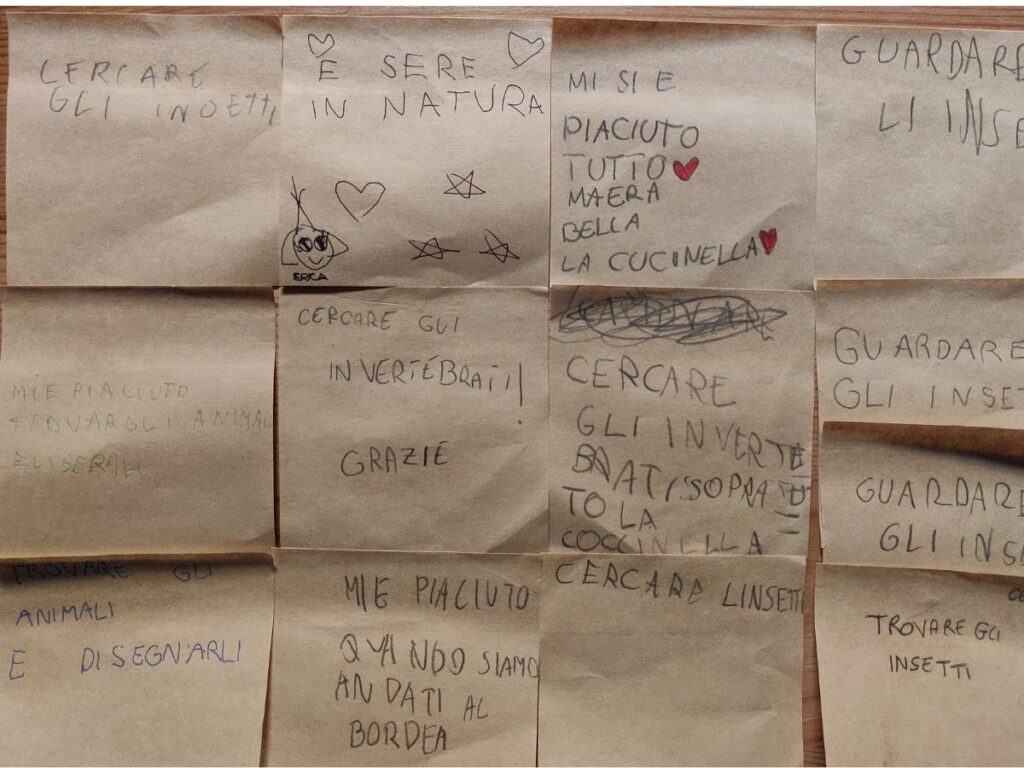 CERCARE
GLI INDETTI
E SERE
IN NATURA
ERICA
MI SI E
PIACIUTO
TUTTO
MAERA
BELLA
LA CUCINELLA
GUARDARE
LI INSE
MIE PIACIUTO
TROVARGLI ANIMAL
CERCARE GLI
INVERTEBRATI!
GRAZIE
CERCARE
GLI INVERTE
BRATISSOPRATUT
TO LA
COCCINELLA
GUARDARE
GLI INSET
GUARDARE
GLI INS
TROVARE GLI
ANIMALI
E DISEGNARLI
MIE PIACIUTO
QUANDO SIAMO
ANDATI AL
BORDEA
CERCARE LINSETTI
TROVARE GLI
INSETTI